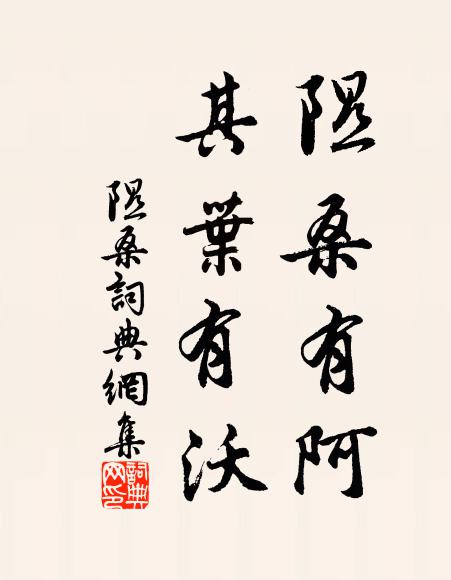 隰桑有阿
其葉有沃
隰桑詞典網集
詞典網印